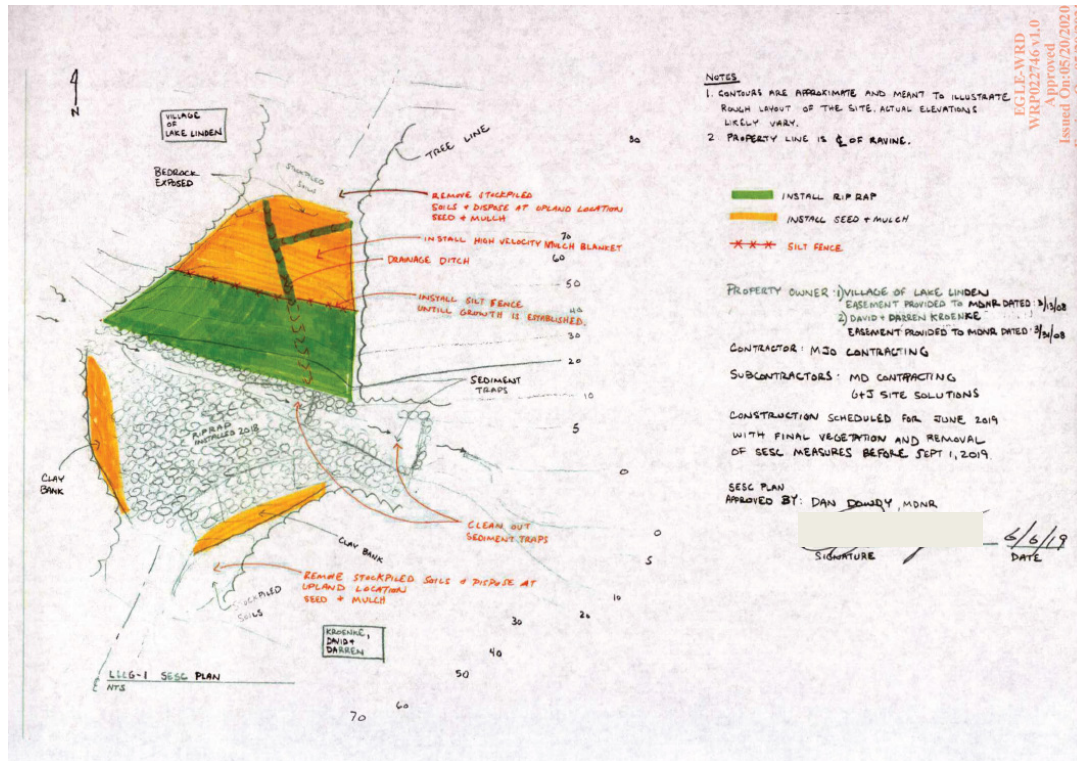 EGLE-WRD
WRP022746 v1.0
Approved
Issued On:05/20/2020
N
VILLAGE
OF
LAKE LINDEN
BEDROCK
EXPOSED
STOCKPILED
SOILS
TREE LINE
REMOVE STOCKPILED
SOILS & DISPOSE AT UPLAND LOCATION
SEED + MULCH
INSTALL HIGH VELOCITY MULCH BLANKET
DRAINAGE DITCH
INSTALL SILT FENCE
UNTILL GROWTH IS ESTABLISHED.
SEDIMENT
TRAPS
RIPRAP
INSTALLED 2018
CLAY
BANK
CLAY BANK
CLEAN OUT
SEDIMENT TRAPS
REMOVE STOCKPILED SOILS & DISPOSE AT
UPLAND LOCATION
SEED + MULCH
STOCKPILED
SOILS
KROENKE,
DAVID +
DARREN
LLLG-1 SESC PLAN
NTS
70
60
50
40
30
20
10
5
0
0
5
10
20
30
40
50
60
70
NOTES
1. CONTOURS ARE APPROXIMATE AND MEANT TO ILLUSTRATE
ROUGH LAYOUT OF THE SITE. ACTUAL ELEVATIONS
LIKELY VARY.
2 PROPERTY LINE IS ℄ OF RAVINE.
INSTALL RIPRAP
INSTALL SEED + MULCH
SILT FENCE
PROPERTY OWNER: 1) VILLAGE OF LAKE LINDEN
EASEMENT PROVIDED TO MDNR DATED: 3/13/08
2) DAVID + DARREN KROENKE
EASEMENT PROVIDED TO MDNR DATED: 3/31/08
CONTRACTOR: MJO CONTRACTING
SUBCONTRACTORS: MD CONTRACTING
G+J SITE SOLUTIONS
CONSTRUCTION SCHEDULED FOR JUNE 2019
WITH FINAL VEGETATION AND REMOVAL
OF SESC MEASURES BEFORE SEPT 1, 2019.
SESC PLAN
APPROVED BY: DAN DOWDY, MDNR
6/6/19
SIGNATURE DATE